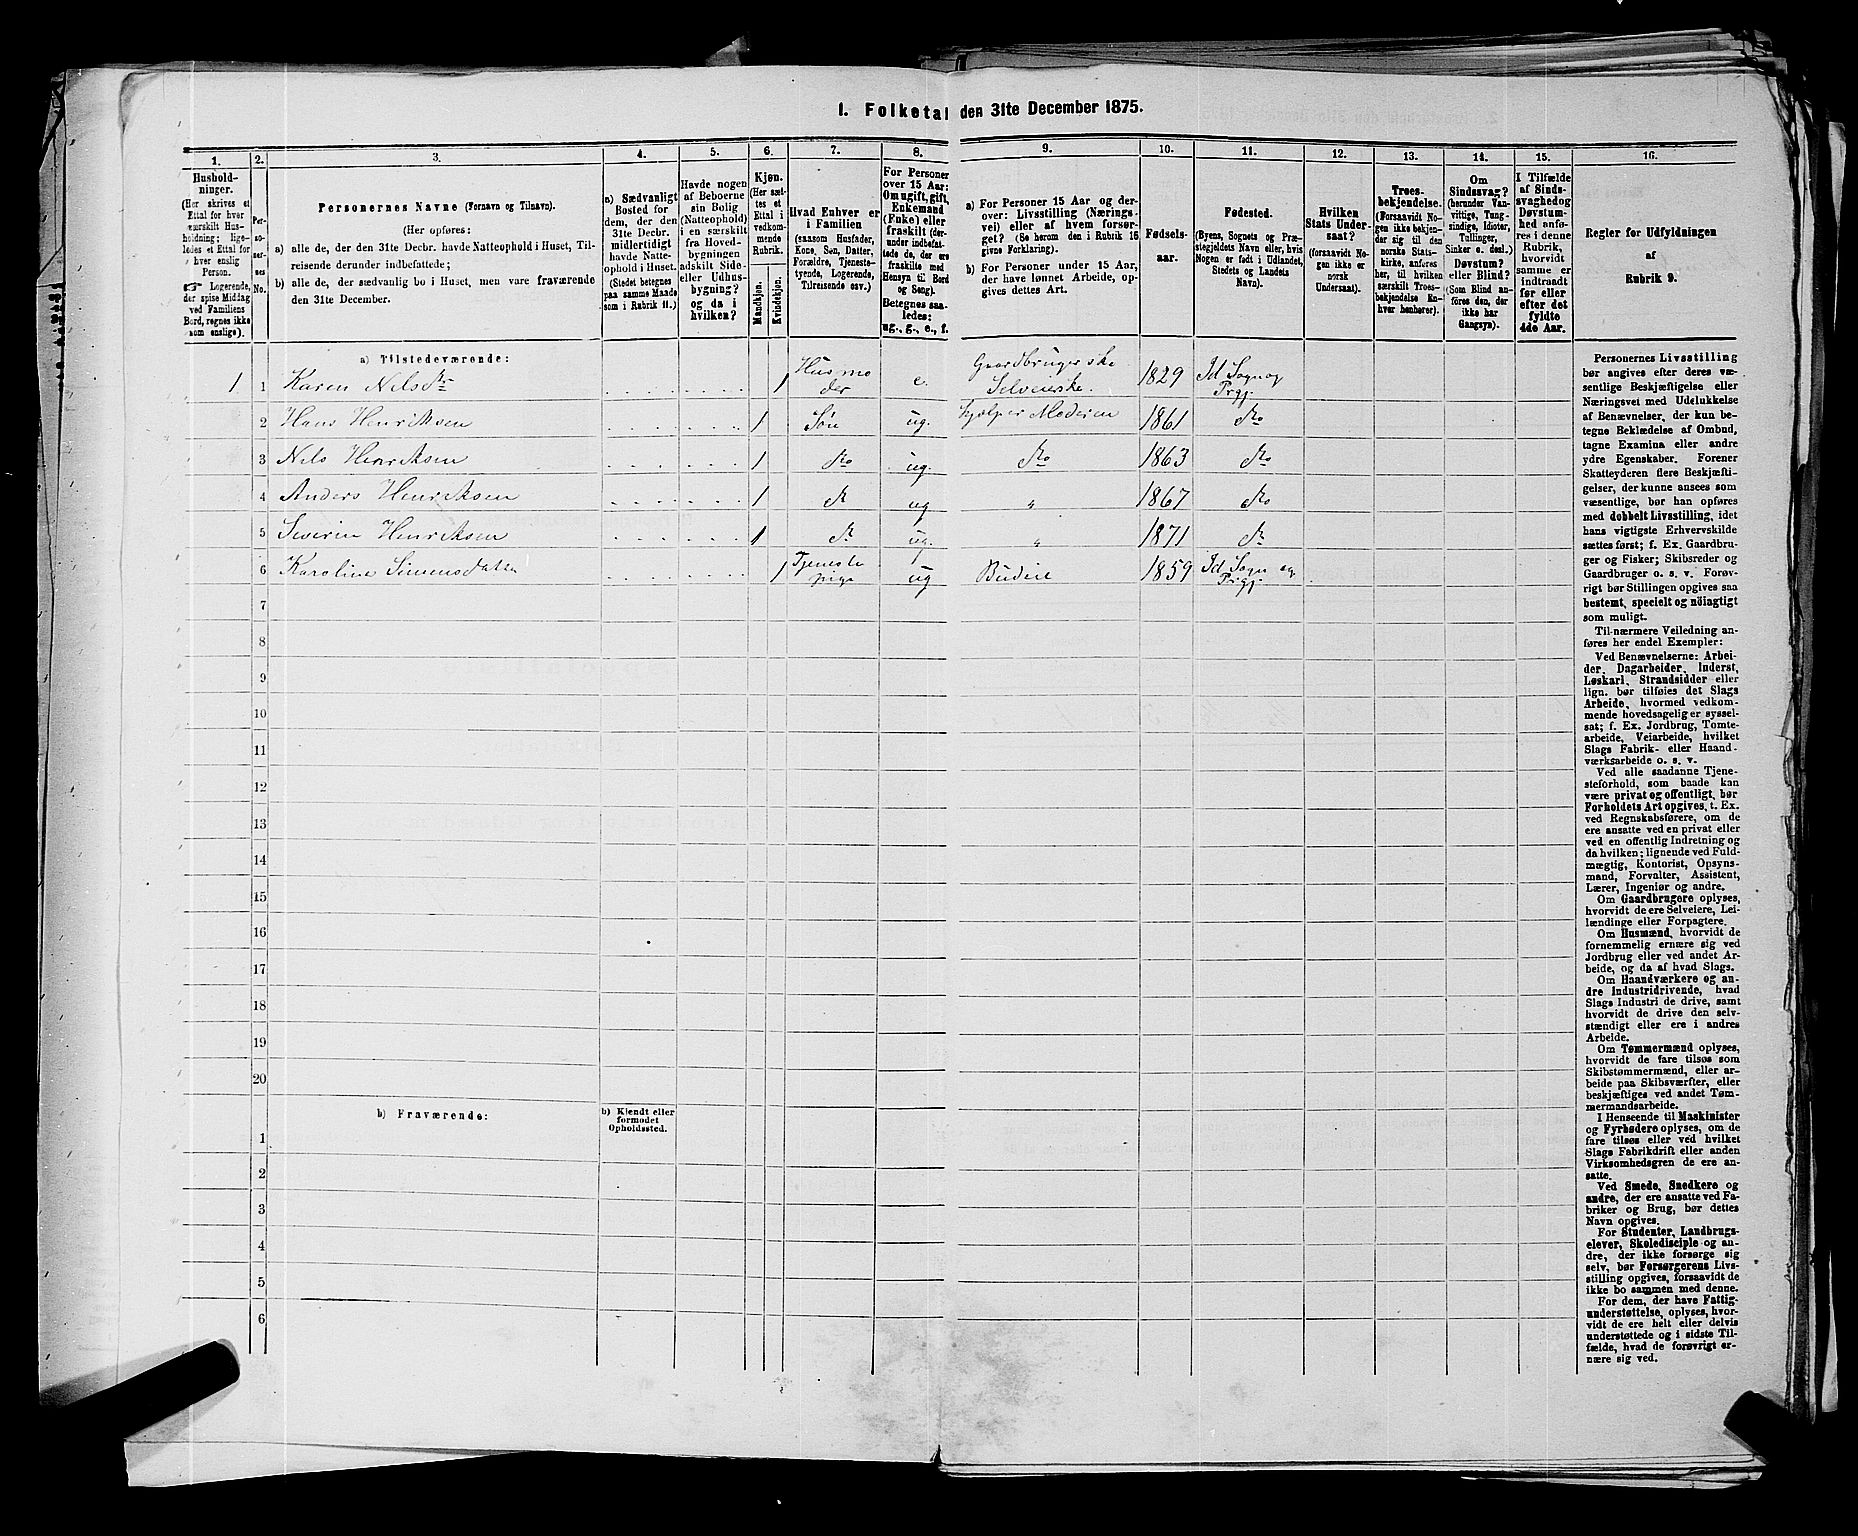 I. Folketal den 31te December 1875.
1. 2. 3. 4. 5. 6. 7. 8. 9. 10. 11. 12. 13. 14. 15. 16.
Husholdninger.
(Her skrives et
Ettal for hver
særskilt Husholdning; ligeledes et Ettal for
hver enslig
Person.
☞ Logerende,
der spise Middag
ved Familiens
Bord, regnes ikke
som enslige).
Personernes No.
Personernes Navne (Fornavn og Tilnavn).
(Her opføres:
a) alle de, der den 31te Decbr. havde Natteophold i Huset, Tilreisende derunder indbefattede;
b) alle de, der sædvanlig bo i Huset, men vare fraværende
den 31te December.
a) Sædvanligt
Bosted for
dem, der den
31te Decbr.
midlertidigt
havde Natteophold i Huset.
(Stedet betegnes
paa samme Maade
som i Rubrik 11.)
Havde nogen
af Beboerne
sin Bolig
(Natteophold)
i en særskilt
fra Hovedbygningen
adskilt Side-
eller Udhusbygning?
og da i
hvilken?
Kjøn.
(Her sættes et
Ettal i
vedkommende
Rubrik.
Mandkjøn.
Kvindekjøn.
Hvad Enhver er
i Familien
(saasom Husfader,
Kone, Søn, Datter,
Forældre, Tjenestetyende, Logerende,
Tilreisende osv.)
For Personer
over 15 Aar:
Om ugift, gift,
Enkemand
(Enke) eller
fraskilt (derunder indbefattede de, der ere
fraskilte med
Hensyn til Bord
og Seng).
Betegnes saaledes:
ug., g., e., f.
a) For Personer 15 Aar og derover: Livsstilling (Næringsvei) eller af hvem forsørget? (Se herom den i Rubrik 16
givne Forklaring).
b) For Personer under 15 Aar,
der have lønnet Arbeide, opgives dettes Art.
Fødselsaar.
Fødested.
(Byens, Sognets og Præstegjeldets Navn eller, hvis
Nogen er født i Udlandet,
Stedets og Landets
Navn).
Hvilken
Stats Undersaat?
(forsaavidt Nogen ikke er
norsk
Undersaat).
Troesbekjendelse.
(Forsaavidt Nogen ikke bekjender sig til den
norske Statskirke, anføres
her, til hvilken
særskilt Troesbekjendelse Enhver henhører).
Om
Sindssvag?
(herunder Vanvittige, Tungsindige, Idioter,
Tullinger,
Sinker o. desl.)
Døvstum?
eller Blind?
(Som Blind anføres den, der
ikke har
Gangsyn).
I Tilfælde
af Sindssvaghed og
Døvstumhed anføres i denne
Rubrik,
hvorvidt
samme er
indtraadt
før eller
efter det
fyldte
4de Aar.
Regler for Udfyldningen
af
Rubrik 9.
a) Tilstedeværende:
1 1 Karen Nilsdr 1 Husmoder e. Gaardbrugerske Selveierske. 1829 Id Sogn og Prgj.
2 Hans Henriksen 1 Søn ug. hjælper Moderen 1861 do
3 Nils Henriksen 1 do ug. do 1863 do
4 Anders Henriksen 1 do ug " 1867 do
5 Severin Henriksen 1 do ug. " 1871 do
6 Karoline Simensdatter 1 Tjenestepige ug Budeie 1859 Id Sogn og Prgj.
7
8
9
10
11
12
13
14
15
16
17
18
19
20
b) Fraværende:
b) Kjendt eller
formodet
Opholdssted.
1
2
3
4
5
6
Personernes Livsstilling
bør angives efter deres væsentlige Beskjæftigelse eller
Næringsvei med Udelukkelse
af Benævnelser, der kun betegne Beklædelse af Ombud,
tagne Examina eller andre
ydre Egenskaber. Forener
Skatteyderen flere Beskjæftigelser, der kunne ansees som
væsentlige, bør han opføres
med dobbelt Livsstilling, idet
hans vigtigste Erhvervskilde
sættes først; f. Ex. Gaardbruger og Fisker; Skibsreder og
Gaardbruger o. s. v. Forøvrigt bør Stillingen opgives saa
bestemt, specielt og nöiagtigt
som muligt.
Til nærmere Veiledning anføres her endel Exempler:
Ved Benævnelserne: Arbeider, Dagarbeider, Inderst,
Løskarl, Strandsidder eller
lign. bør tilføies det Slags
Arbeide, hvormed vedkommende hovedsagelig er sysselsat; f. Ex. Jordbrug, Tomtearbeide, Veiarbeide, hvilket
Slags Fabrik- eller Haandværksarbeide o. s. v.
Ved alle saadanne Tjenesteforhold, som baade kan
være privat og offentligt, bør
Forholdets Art opgives, t. Ex.
ved Regnskabsførere, om de
ere ansatte ved en privat eller
ved en offentlig Indretning og
da hvilken; lignende ved Fuldmægtig, Kontorist, Opsynsmand, Forvalter, Assistent,
Lærer, Ingeniør og andre.
Om Gaardbrugere oplyses,
hvorvidt de ere Selveiere, Leilændinge eller Forpagtere.
Om Husmænd, hvorvidt de
fornemmelig ernære sig ved
Jordbrug eller ved andet Arbeide, og da af hvad Slags.
Om Haandværkere og andre Industridrivende, hvad
Slags Industri de drive, samt
hvorvidt de drive den selvstændigt eller ere i andres
Arbeide.
Om Tømmermænd oplyses,
hvorvidt de fare tilsøs som
Skibstømmermænd, eller arbeide paa Skibsværfter, eller
beskjæftiges ved andet Tømmermandsarbeide.
I Henseende til Maskinister
og Fyrbødere oplyses, om de
fare tilsøs eller ved hvilket
Slags Fabrikdrift eller anden
Virksomhedsgren de ere ansatte.
Ved Smede, Snedkere og
andre, der ere ansatte ved Fabriker og Brug, bør dettes
Navn opgives.
For Studenter, Landbrugselever, Skoledisciple og andre, der ikke forsørge sig
selv, bør Forsørgerens Livsstilling opgives, forsaavidt de
ikke bo sammen med denne.
For dem, der have Fattigunderstøttelse, oplyses, hvorvidt de ere helt eller delvis
understøttede og i sidste Tilfælde, hvad de forøvrigt ernære sig ved.